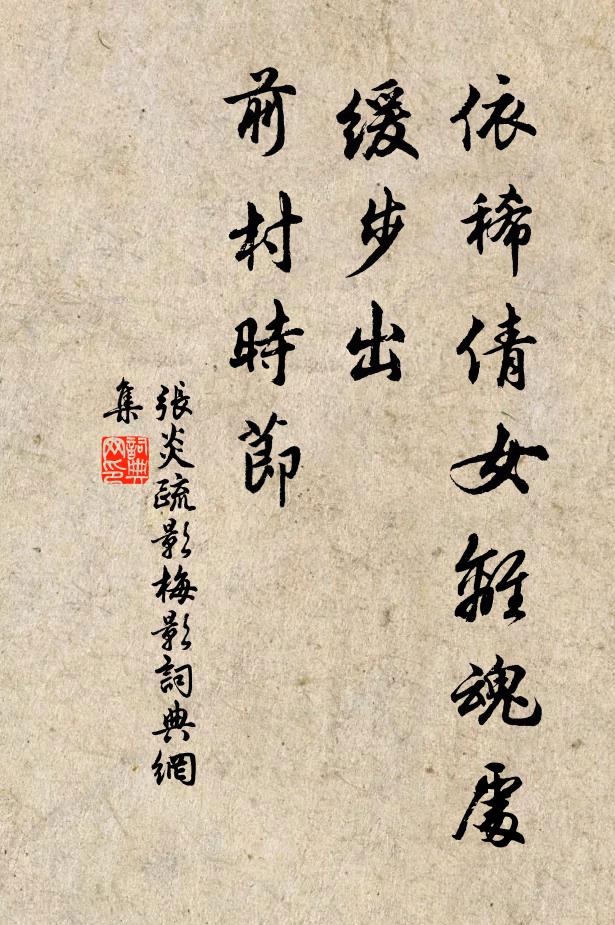 依稀倩女離魂處
緩步出
前村時節
張炎疏影梅影詞典網
集
詞典網印